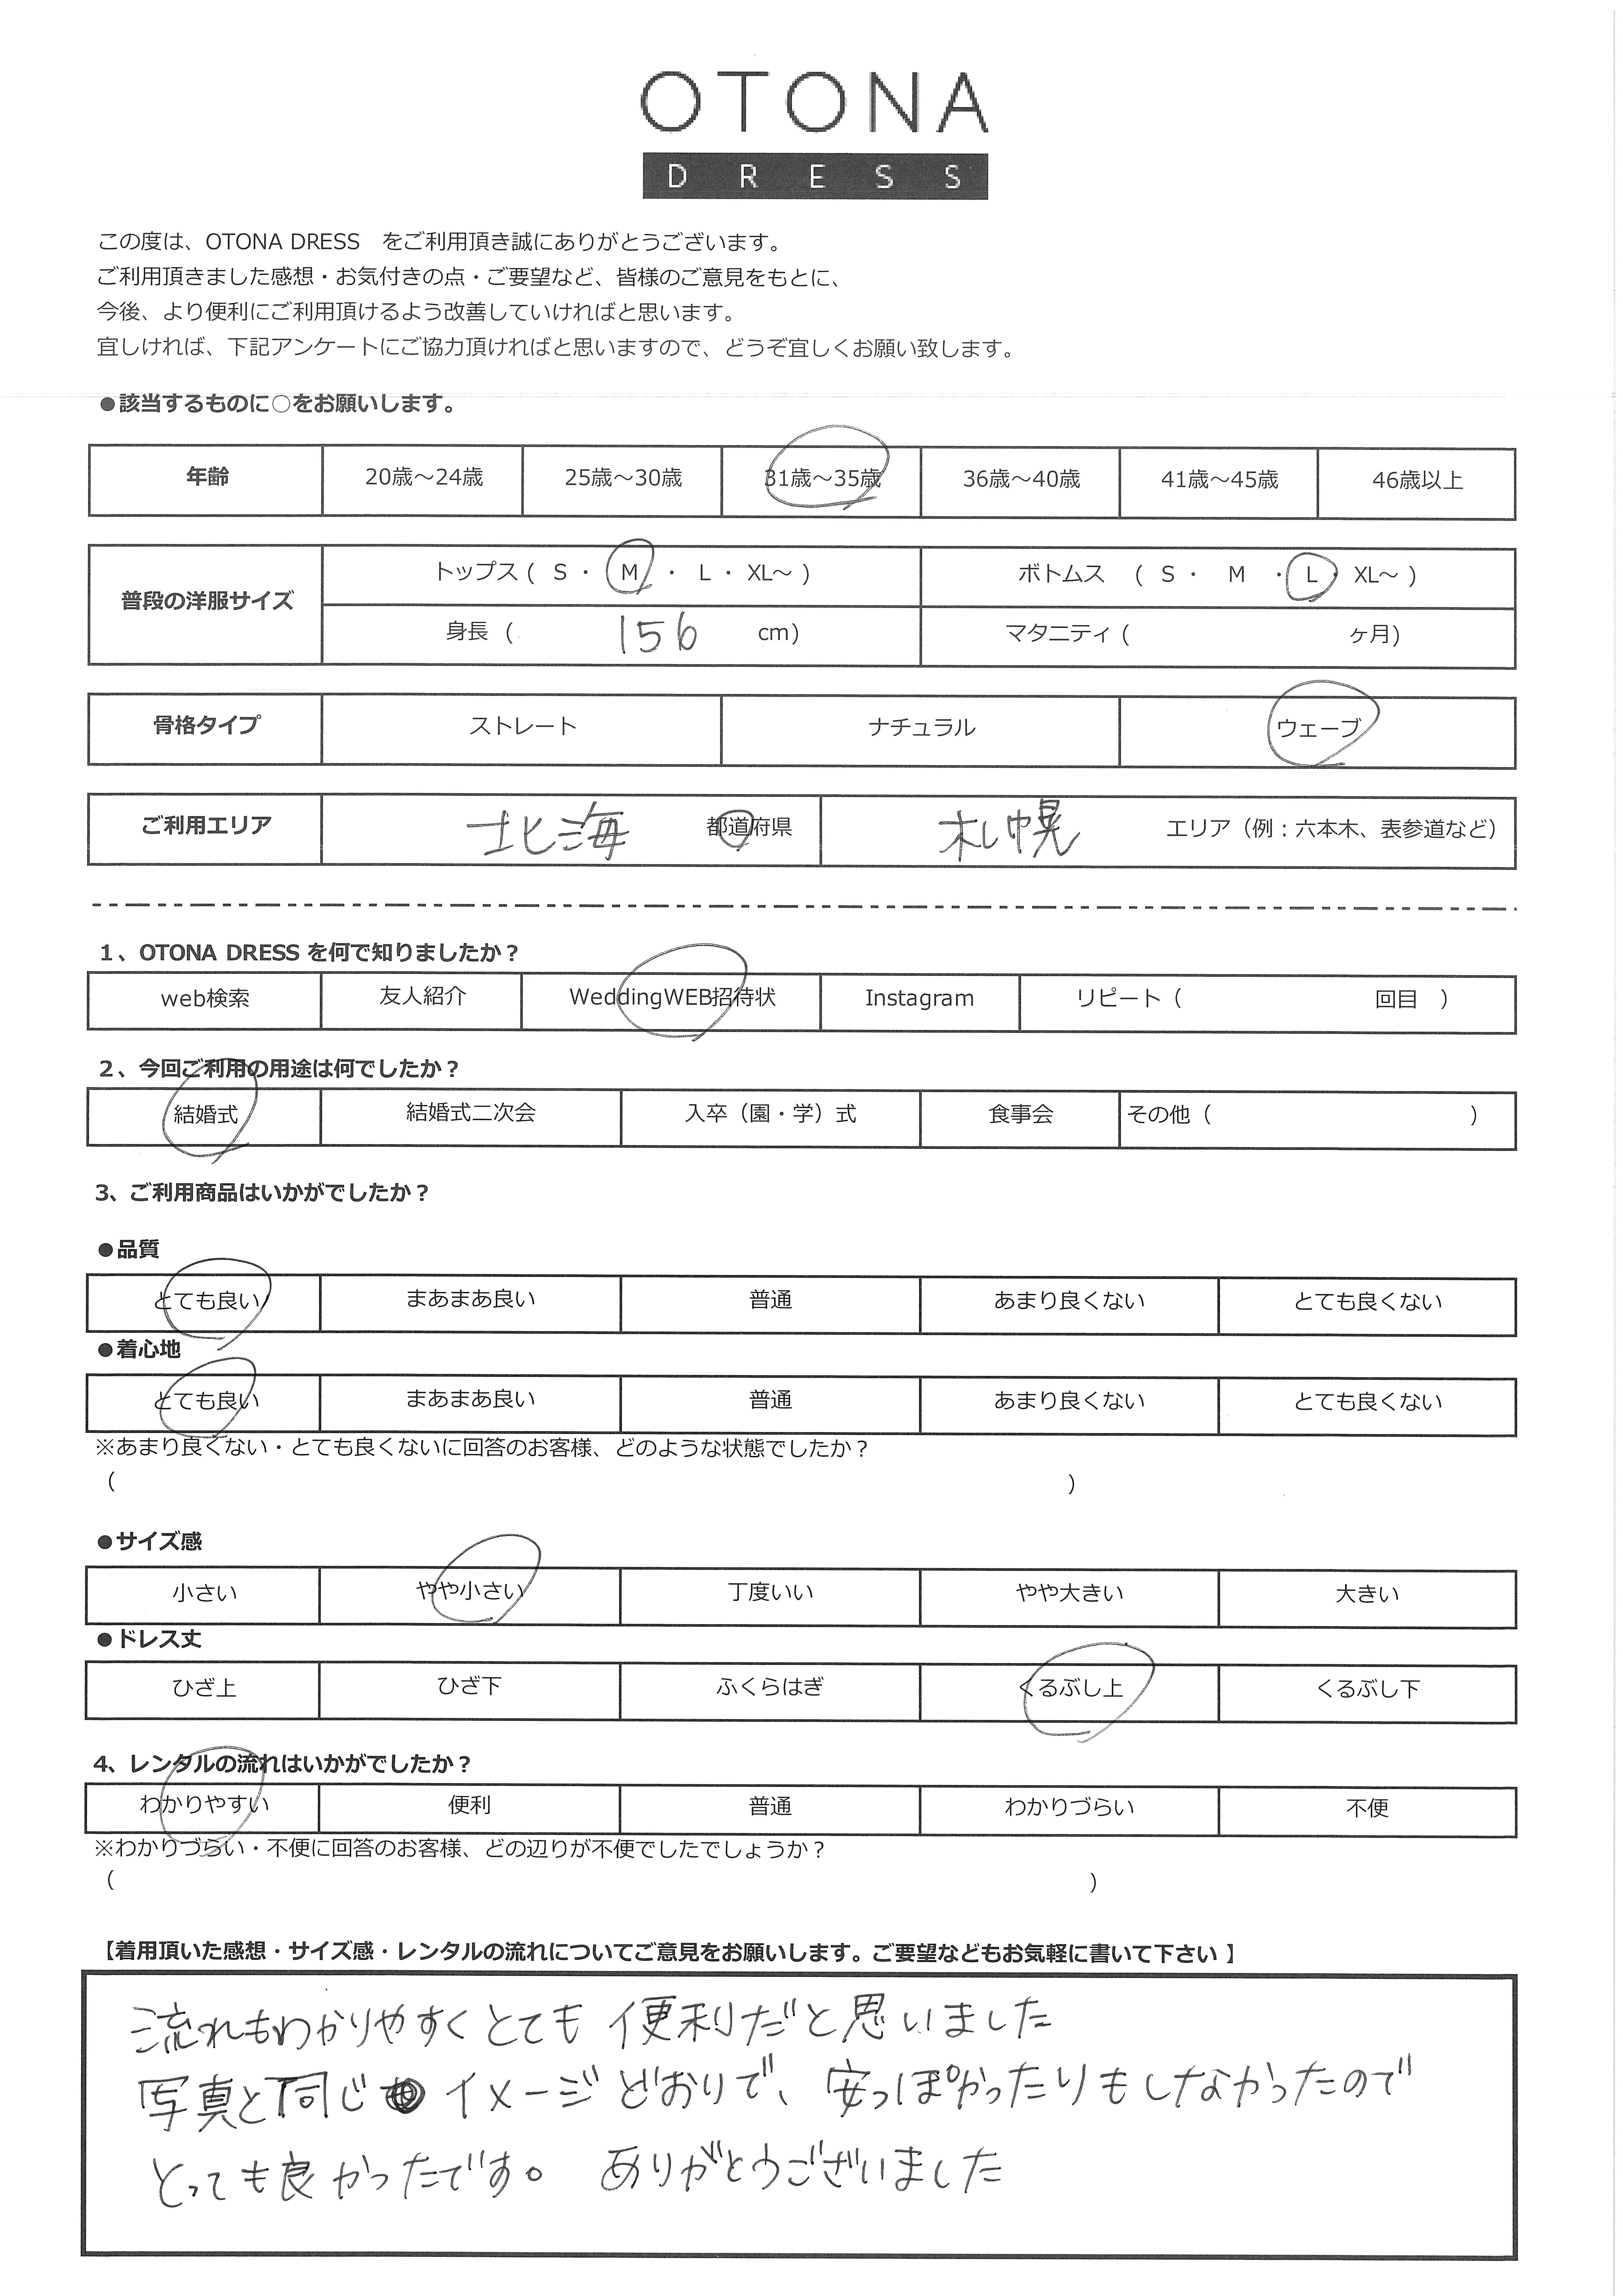 OTONA
DRESS
この度は、OTONA DRESS　をご利用頂き誠にありがとうございます。
ご利用頂きました感想・お気付きの点・ご要望など、皆様のご意見をもとに、
今後、より便利にご利用頂けるよう改善していければと思います。
宜しければ、下記アンケートにご協力頂ければと思いますので、どうぞ宜しくお願い致します。
●該当するものに○をお願いします。
年齢 20歳～24歳 25歳～30歳 31歳～35歳 36歳～40歳 41歳～45歳 46歳以上
普段の洋服サイズ トップス ( S ・ M ・ L ・ XL～ ) ボトムス ( S ・ M ・ L ・ XL～ )
身長 ( 156 cm) マタニティ ( ヶ月)
骨格タイプ ストレート ナチュラル ウェーブ
ご利用エリア 北海 都道府県 札幌 エリア（例：六本木、表参道など）
1、OTONA DRESS を何で知りましたか？
web検索 友人紹介 WeddingWEB招待状 Instagram リピート（ 回目 ）
2、今回ご利用の用途は何でしたか？
結婚式 結婚式二次会 入卒（園・学）式 食事会 その他（ ）
3、ご利用商品はいかがでしたか？
●品質
とても良い まあまあ良い 普通 あまり良くない とても良くない
●着心地
とても良い まあまあ良い 普通 あまり良くない とても良くない
※あまり良くない・とても良くないに回答のお客様、どのような状態でしたか？
（ ）
●サイズ感
小さい やや小さい 丁度いい やや大きい 大きい
●ドレス丈
ひざ上 ひざ下 ふくらはぎ くるぶし上 くるぶし下
4、レンタルの流れはいかがでしたか？
わかりやすい 便利 普通 わかりづらい 不便
※わかりづらい・不便に回答のお客様、どの辺りが不便でしたでしょうか？
（ ）
【着用頂いた感想・サイズ感・レンタルの流れについてご意見をお願いします。ご要望などもお気軽に書いて下さい 】
流れもわかりやすくとても便利だと思いました
写真と同じイメージどおりで、安っぽかったりもしなかったので
とっても良かったです。 ありがとうございました